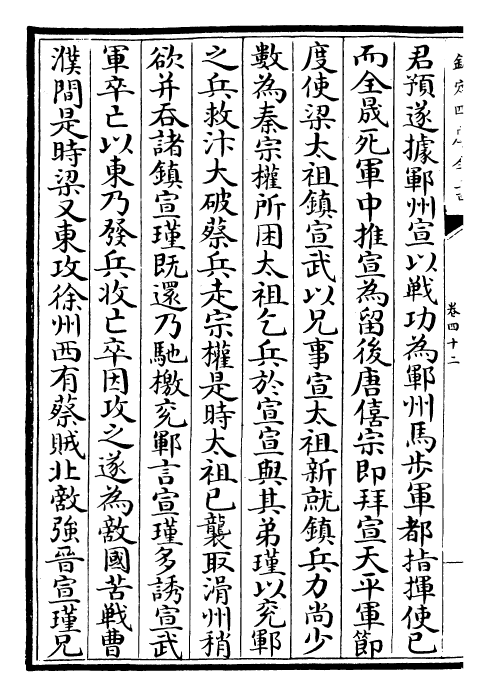 欽定四庫全書
卷四十二
君預遂據鄆州宣以戰功為鄆州馬步軍都指揮使已
而全晟死軍中推宣為留後唐僖宗即拜宣天平軍節
度使梁太祖鎮宣武以兄事宣太祖新就鎮兵力尚少
數為秦宗權所困太祖乞兵於宣宣與其弟瑾以兖鄆
之兵救汴大破蔡兵走宗權是時太祖已襲取滑州稍
欲并吞諸鎮宣瑾既還乃馳檄兖鄆言宣瑾多誘宣武
軍卒亡以東乃發兵收亡卒因攻之遂為敵國苦戰曹
濮間是時梁又東攻徐州西有蔡賊北敵強晉宣瑾兄